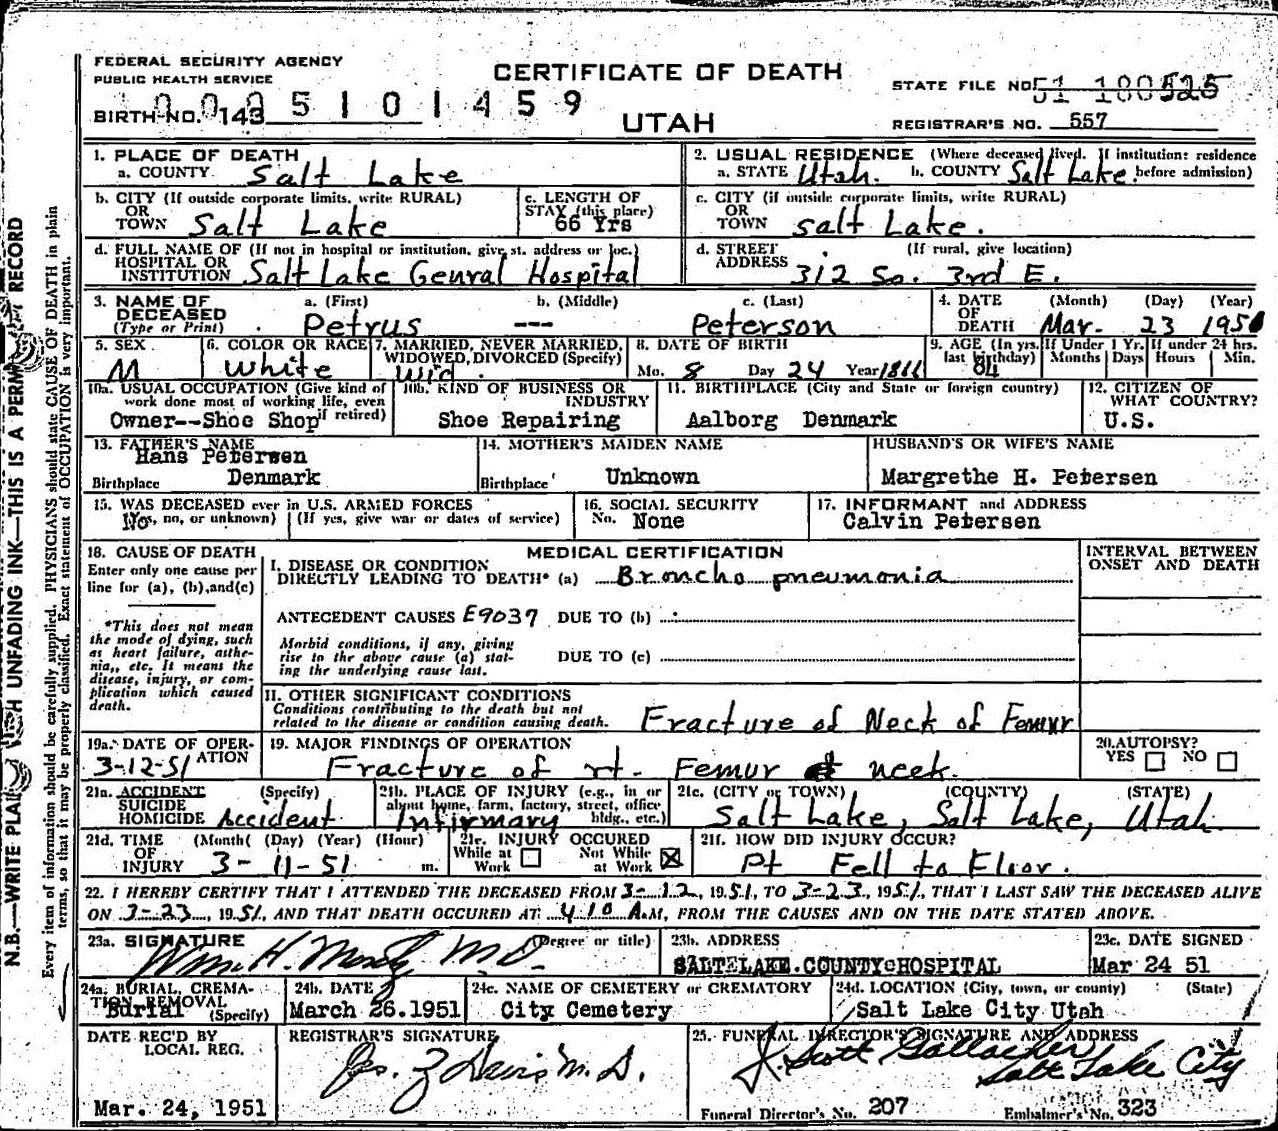 FEDERAL SECURITY AGENCY
PUBLIC HEALTH SERVICE
CERTIFICATE OF DEATH
UTAH
STATE FILE NO. 51 180525
BIRTH NO. 143
0 0 0 5 1 0 1 4 5 9
REGISTRAR'S NO. 557
1. PLACE OF DEATH
a. COUNTY Salt Lake
2. USUAL RESIDENCE (Where deceased lived. If institution: residence before admission)
a. STATE Utah. b. COUNTY Salt Lake.
b. CITY (If outside corporate limits, write RURAL)
OR
TOWN Salt Lake
c. LENGTH OF
STAY (this place)
66 Yrs
c. CITY (if outside corporate limits, write RURAL)
OR
TOWN Salt Lake.
d. FULL NAME OF (If not in hospital or institution, give st. address or loc.)
HOSPITAL OR
INSTITUTION Salt Lake Genral Hospital
d. STREET (If rural, give location)
ADDRESS 312 So. 3rd E.
3. NAME OF
DECEASED
(Type or Print)
a. (First) b. (Middle) c. (Last)
Petrus --- Peterson
4. DATE
OF
DEATH
(Month) (Day) (Year)
Mar. 23 1951
5. SEX
M
6. COLOR OR RACE
White
7. MARRIED, NEVER MARRIED,
WIDOWED, DIVORCED (Specify)
Wid.
8. DATE OF BIRTH
Mo. 8 Day 24 Year 1866
9. AGE (In yrs. last birthday)
84
If Under 1 Yr.
Months Days
If under 24 hrs.
Hours Min.
10a. USUAL OCCUPATION (Give kind of
work done most of working life, even
if retired)
Owner--Shoe Shop
10b. KIND OF BUSINESS OR
INDUSTRY
Shoe Repairing
11. BIRTHPLACE (City and State or foreign country)
Aalborg Denmark
12. CITIZEN OF
WHAT COUNTRY?
U.S.
13. FATHER'S NAME
Hans Petersen
Birthplace Denmark
14. MOTHER'S MAIDEN NAME
Birthplace Unknown
HUSBAND'S OR WIFE'S NAME
Margrethe H. Petersen
15. WAS DECEASED ever in U.S. ARMED FORCES
(Yes, no, or unknown) (If yes, give war or dates of service)
No
16. SOCIAL SECURITY
No. None
17. INFORMANT and ADDRESS
Calvin Petersen
18. CAUSE OF DEATH
Enter only one cause per
line for (a), (b), and (c)
*This does not mean
the mode of dying, such
as heart failure, asthe-
nia,, etc. It means the
disease, injury, or com-
plication which caused
death.
MEDICAL CERTIFICATION
INTERVAL BETWEEN
ONSET AND DEATH
I. DISEASE OR CONDITION
DIRECTLY LEADING TO DEATH* (a) Broncho pneumonia
ANTECEDENT CAUSES E9037 DUE TO (b)
Morbid conditions, if any, giving
rise to the above cause (a) stat-
ing the underlying cause last.
DUE TO (c)
II. OTHER SIGNIFICANT CONDITIONS
Conditions contributing to the death but not
related to the disease or condition causing death.
Fracture of Neck of Femur
19a. DATE OF OPER-
ATION
3-12-51
19. MAJOR FINDINGS OF OPERATION
Fracture of rt. Femur neck.
20. AUTOPSY?
YES NO
21a. ACCIDENT (Specify)
SUICIDE
HOMICIDE Accident
21b. PLACE OF INJURY (e.g., in or
about home, farm, factory, street, office
bldg., etc.)
Infirmary
21c. (CITY or TOWN) (COUNTY) (STATE)
Salt Lake, Salt Lake, Utah.
21d. TIME (Month) (Day) (Year) (Hour)
OF
INJURY 3-11-51 m.
21e. INJURY OCCURED
While at Work Not While at Work
21f. HOW DID INJURY OCCUR?
Pt Fell to Floor.
22. I HEREBY CERTIFY THAT I ATTENDED THE DECEASED FROM 3-12, 1951, TO 3-23, 1951, THAT I LAST SAW THE DECEASED ALIVE
ON 3-23, 1951, AND THAT DEATH OCCURED AT 410 A.M, FROM THE CAUSES AND ON THE DATE STATED ABOVE.
23a. SIGNATURE (Degree or title)
Wm. H. M.D.
23b. ADDRESS
SALT LAKE COUNTY HOSPITAL
23c. DATE SIGNED
Mar 24 51
24a. BURIAL, CREMA-
TION, REMOVAL
(Specify)
Burial
24b. DATE
March 26.1951
24c. NAME OF CEMETERY or CREMATORY
City Cemetery
24d. LOCATION (City, town, or county) (State)
Salt Lake City Utah
DATE REC'D BY
LOCAL REG.
Mar. 24, 1951
REGISTRAR'S SIGNATURE
Jos. Z Davis M.D.
25. FUNERAL DIRECTOR'S SIGNATURE AND ADDRESS
J. Scott Gallacher
Salt Lake City
Funeral Director's No. 207
Embalmer's No. 323
N.B.—WRITE PLAINLY WITH UNFADING INK—THIS IS A PERMANENT RECORD
Every item of information should be carefully supplied. PHYSICIANS should state CAUSE OF DEATH in plain
terms, so that it may be properly classified. Exact statement of OCCUPATION is very important.